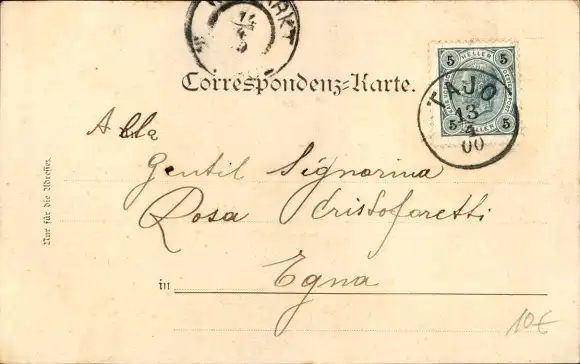 ARKT
14
4
Correspondenz-Karte.
5 HELLER 5
5 HELLER 5
TAJO
13
4
00
Alla
Gentil Signorina
Rosa Cristoforetti
in Egna
Nur für die Adresse.
10€